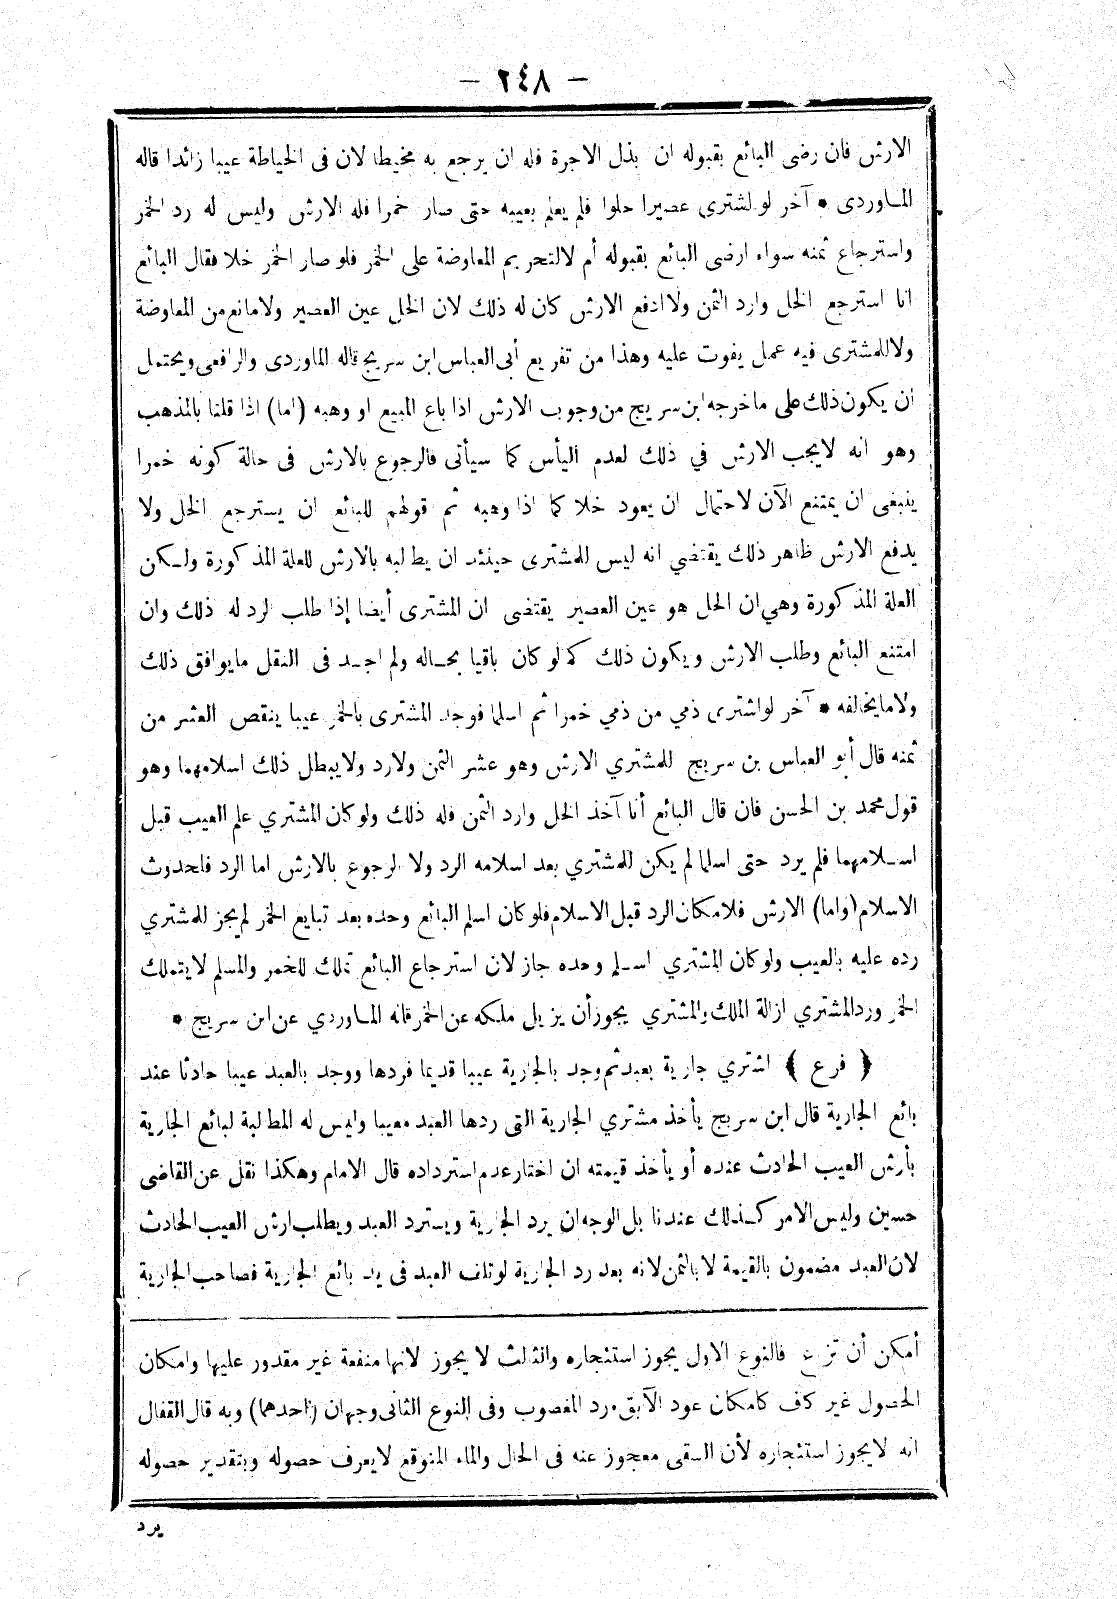 — ٢٤٨ —
الارش فان رضى البائع بقبوله ان بذل الاجرة فله ان يرجع به مخيطا لان فى الخياطة عيبا زائدا قاله
المـاوردى * آخر لو اشترى عصيرا حلوا فلم يعلم بعيبه حتى صار خمرا فله الارش وليس له رد الخمر
واسترجاع ثمنه سواء ارضى البائع بقبوله أم لا لتحريم المعاوضة على الخمر فلو صار الخمر خلا فقال البائع
انا استرجع الخل وارد الثمن ولا ادفع الارش كان له ذلك لان الخل عين العصير ولا مانع من المعاوضة
ولا للمشترى فيه عمل يفوت عليه وهذا من تفريع أبى العباس ابن سريج قاله الماوردى والرافعى ويحتمل
ان يكون ذلك على ما خرجه ابن سريج من وجوب الارش اذا باع المبيع او وهبه (اما) اذا قلنا بالمذهب
وهو انه لا يجب الارش في ذلك لعدم اليأس كما سيأتى فالرجوع بالارش فى حالة كونه خمرا
ينبغى ان يمتنع الآن لاحتمال ان يعود خلا كما اذا وهبه ثم قولهم للبائع ان يسترجع الخل ولا
يدفع الارش ظاهر ذلك يقتضي انه ليس للمشترى حينئذ ان يطالبه بالارش للعلة المذكورة ولـكن
العلة المذكورة وهي ان الخل هو عين العصير يقتضى ان المشترى أيضا إذا طلب لرد له ذلك وان
امتنع البائع وطلب الارش ويكون ذلك كما لو كان باقيا بحـاله ولم اجـد فى النقل ما يوافق ذلك
ولا ما يخالفه * آخر لو اشترى ذمي من ذمي خمرا ثم اسلما فوجد المشترى بالخمر عيبا ينقص العشر من
ثمنه قال أبو العباس بن سريج للمشتري الارش وهو عشر الثمن ولا رد ولا يبطل ذلك اسلامهما وهو
قول محمد بن الحسن فان قال البائع أنا آخذ الخل وارد الثمن فله ذلك ولو كان المشتري علم العيب قبل
اسـلامهما فلم يرد حتى اسلما لم يكن للمشتري بعد اسلامه الرد ولا الرجوع بالارش اما الرد فلحدوث
الاسلام (واما) الارش فلامكان الرد قبل الاسلام فلو كان اسلم البائع وحده بعد تبايع الخمر لم يجز للمشتري
رده عليه بالعيب ولو كان المشتري اسـلم وحده جاز لان استرجاع البائع تملك للخمر والمسلم لا يتملك
الخمر ورد المشتري ازالة الملك والمشتري يجوز أن يزيل ملكه عن الخمر قاله المـاوردي عن ابن سريج *
﴿ فرع ﴾ اشتري جارية بعبد ثم وجد بالجارية عيبا قديما فردها ووجد بالعبد عيبا حادثا عند
بائع الجارية قال ابن سريج يأخذ مشتري الجارية التى ردها العبد معيبا وليس له المطالبة لبائع الجارية
بأرش العيب الحادث عنده أو يأخذ قيمته ان اختار عدم استرداده قال الامام وهكذا نقل عن القاضى
حسين وليس الامر كـذلك عندنا بل الوجه ان يرد الجارية ويسترد العبد ويطلب ارش العيب الحادث
لان العبد مضمون بالقيمة لا بالثمن لانه بعد رد الجارية لو تلف العبد فى يد بائع الجارية فصاحب الجارية
أمكن أن تزرع فالنوع الاول يجوز استئجاره والثالث لا يجوز لانها منفعة غير مقدور عليها وامكان
الحصول غير كف كامكان عود الآبق ورد المغصوب وفى النوع الثانى وجهان (احدهما) وبه قال القفال
انه لا يجوز استئجاره لأن السقى معجوز عنه فى الحال والماء المتوقع لا يعرف حصوله وبتقدير حصوله
يرد